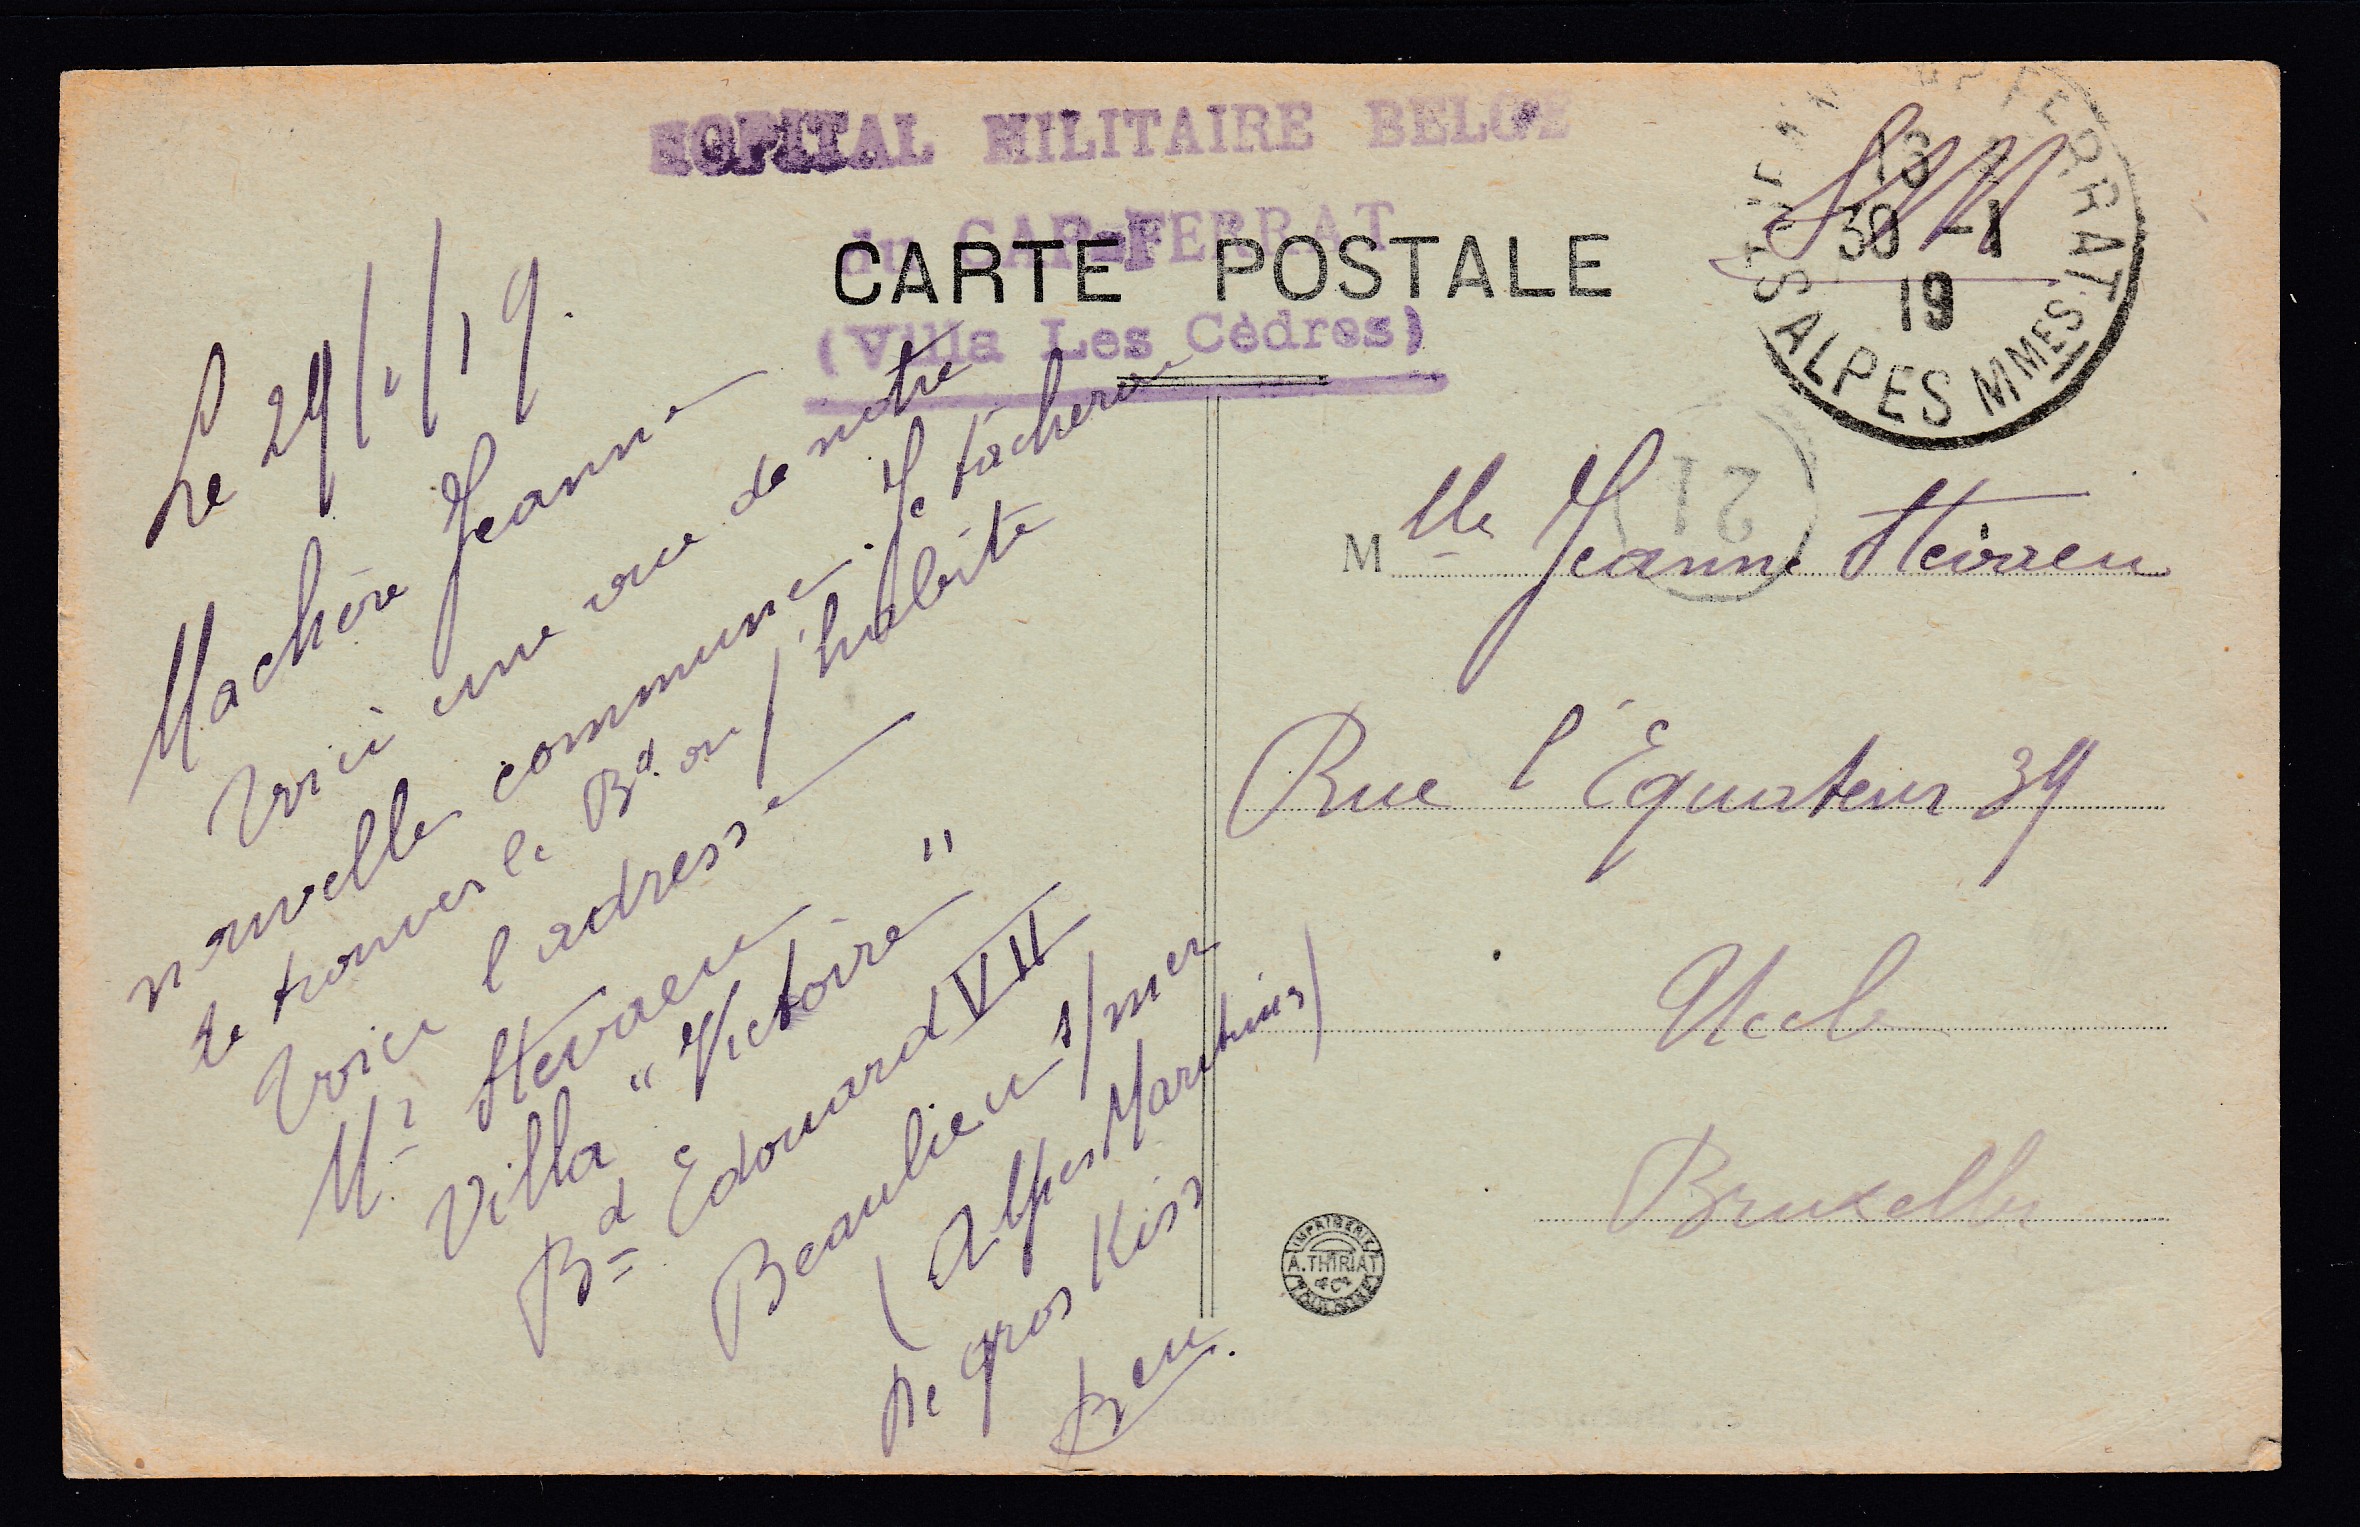 HOPITAL MILITAIRE BELGE
du CAP-FERRAT
CARTE POSTALE
(Villa Les Cèdres)
ST JEAN CAP FERRAT
13
30 -1
19
ALPES MMES
SM
21
Le 29/1/19.
Ma chère Jeanne
Voici une vue de notre
nouvelle commune. Je tacherai
de trouver le Bd. ou j'habite
Voici l'adresse
Mr Stevaen
Villa "Victoire"
Bd Edouard VII
Beaulieu s/mer
(Alpes Maritimes)
De gros Kiss
Ben.
M lle Jeanne Stevaen
Rue l'Équateur 39
Uccle
Bruxelles
IMPRIMERIE
A. THIRIAT
TOULOUSE